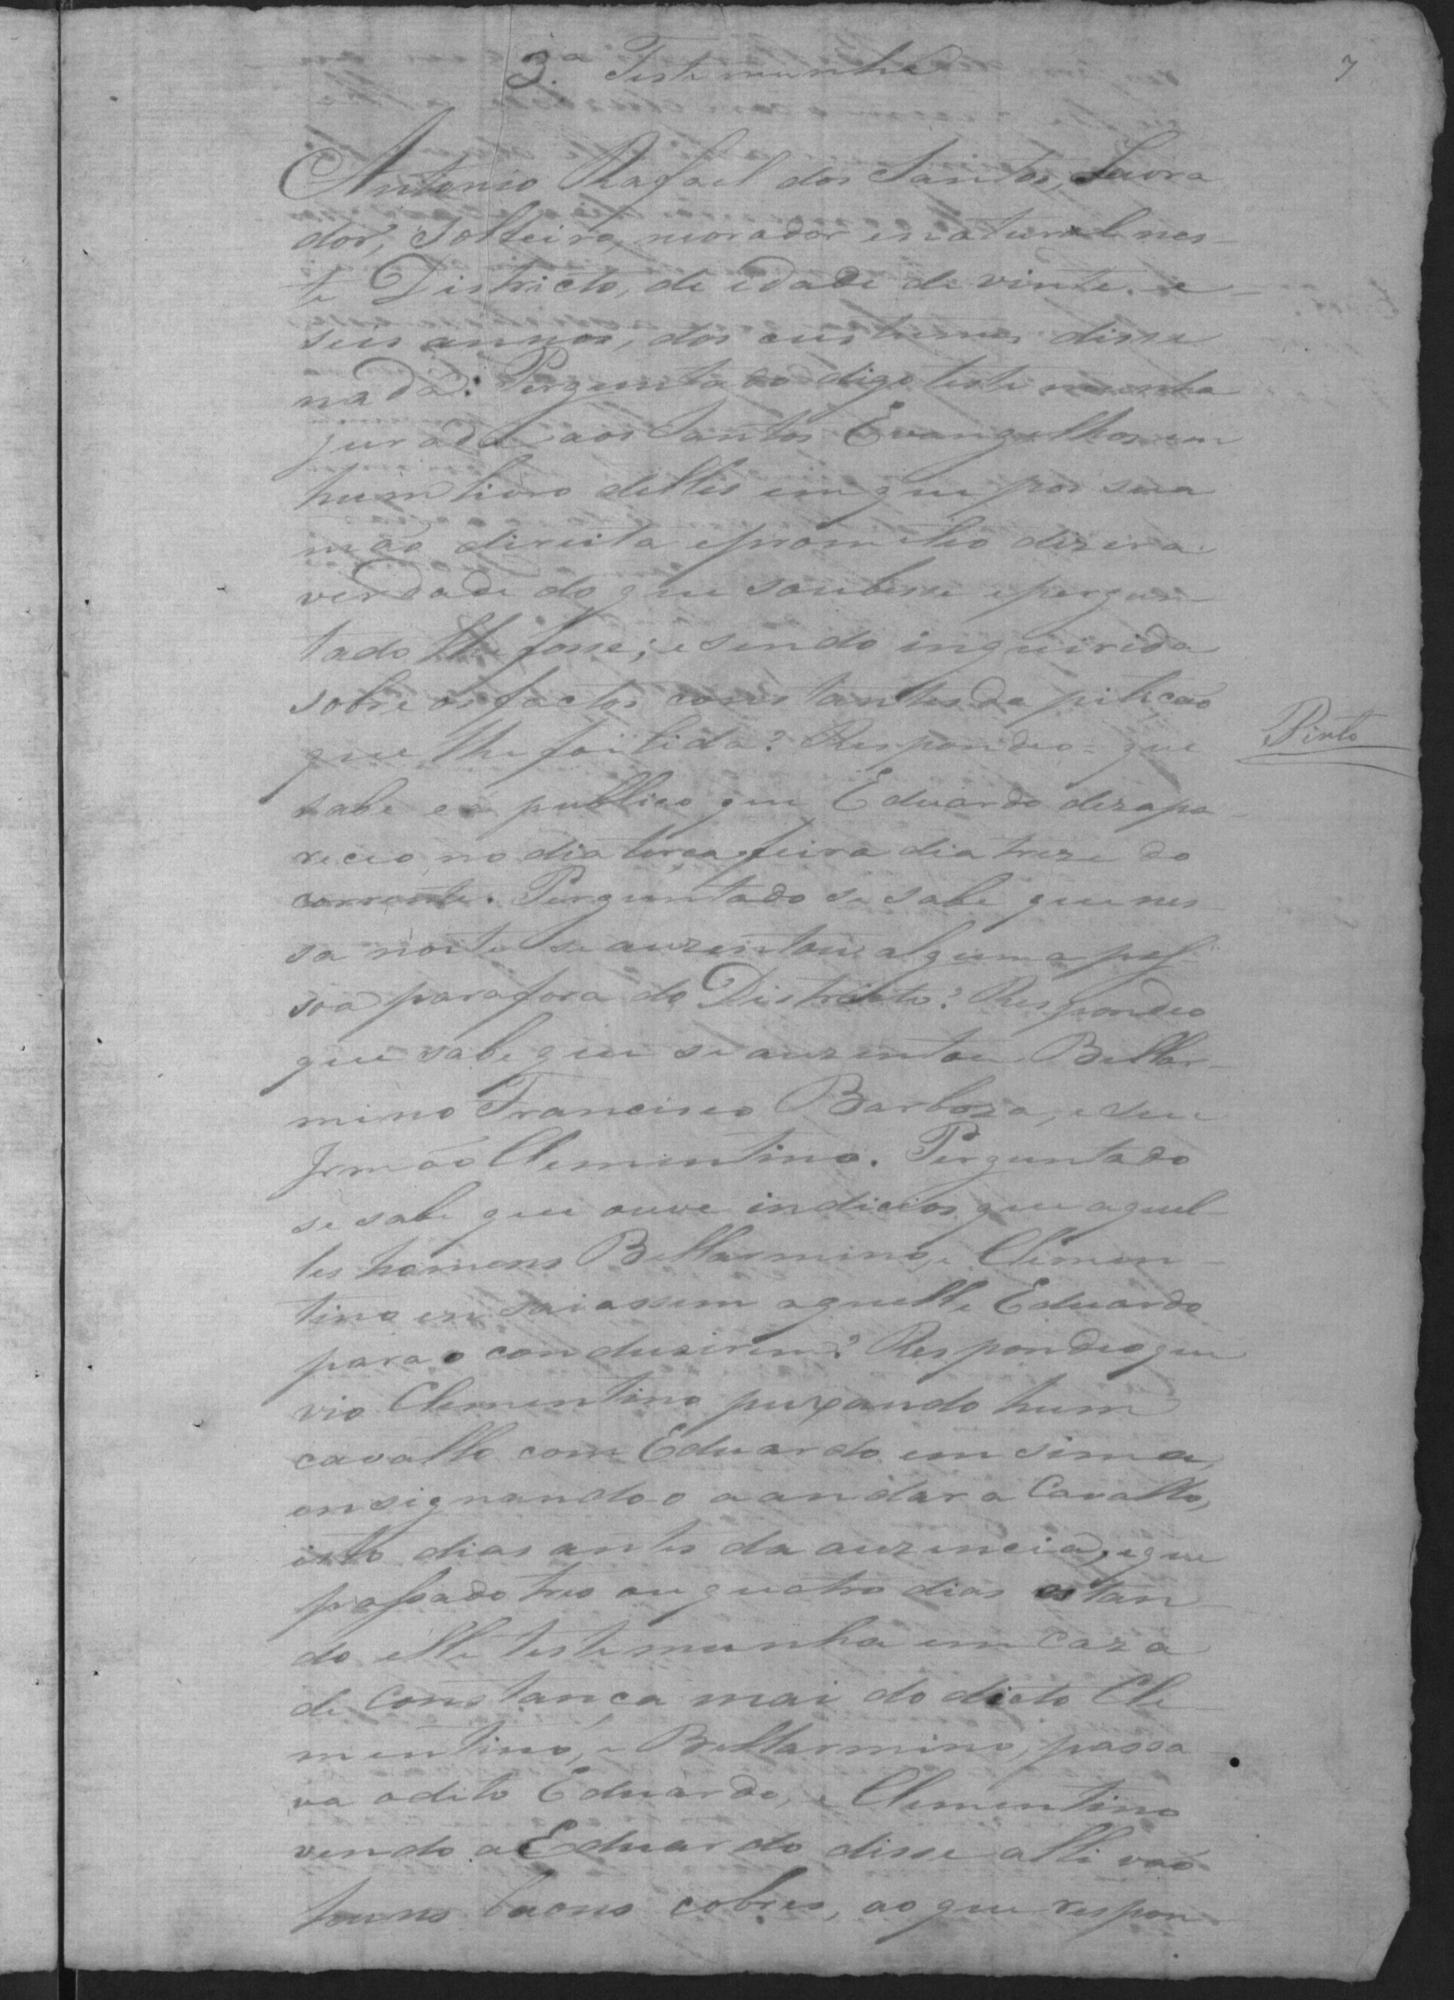 3.a Testemunha
7
Antonio Rafael dos Santos, Lavra
dor, Solteiro, morador e natural nes-
te Districto, de edade de vinte e
seis annos, dos custumes disse
nada. Perguntado digo testemunha
jurada aos Santos Evangelhos em
hum livro delles em que pos sua
mão direita e prometeo dizer a
verdade do que soubesse e pergun-
tado lhe fosse; e sendo inquirida
sobre os factos constantes da pitição
que lhe foi lida? Respondeo = que
Pinto
sabe e é publico que Eduardo dezapa-
receo no dia terça feira dia treze do
corrente. Perguntado se sabe que nes-
sa noite se auzentou alguma pes-
soa para fora do Districto? Respondeo
que sabe que se auzentou Bellar-
mino Francisco Barboza, e seu
Irmão Clementino. Perguntado
se sabe que ouve indicios que aquel-
les homens Bellarmino, e Clemen-
tino ensaiassem aquelle Eduardo
para o condusirem? Respondeo que
vio Clementino puxando hum
cavallo com Eduardo em sima,
ensignando o a andar a Cavallo,
isto dias antes da auzencia, e que
passado tres ou quatro dias estan-
do elle testemunha em caza
de Constança mai do dicto Cle-
mentino, e Bellarmino, passa-
va o dito Eduardo, e Clementino
vendo a Eduardo disse alli vão
huns baons cobres, ao que respon-